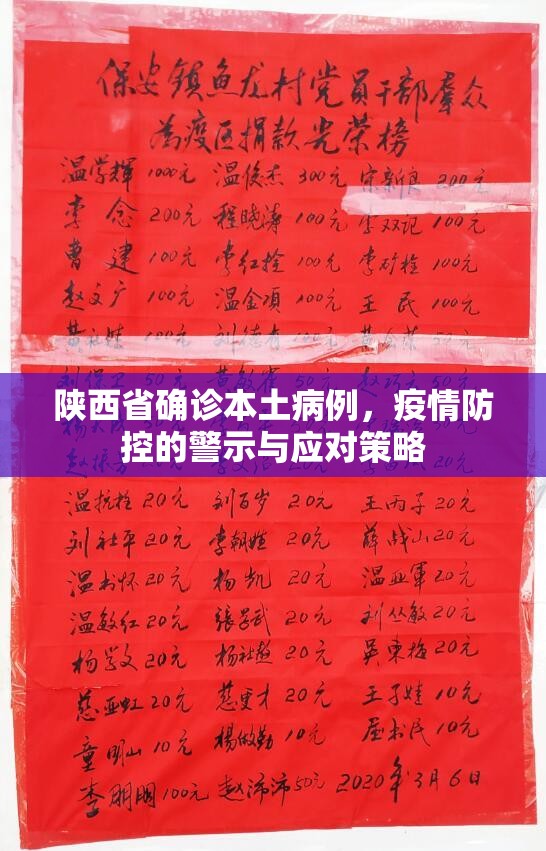 保安镇鱼龙村党员干部群众
为疫区捐款光荣榜
温学辉 1000元 温俊杰 300元 宋新良 200元
李念 200元 程晓涛 100元 李双记 100元
曹建 100元 李红拴 100元 李矿栓 100元
赵文广 100元 温金项 100元 王民 100元
100元 刘德有 100元 50元
刘保卫 50元 50元 50元
陕西省确诊本土病例，疫情防
控的警示与应对策略
温抗栓 20元 刘百岁 20元 王丙子 20元
刘社平 20元 李朝姓 20元 薛战山 20元
温书怀 20元 杨凯 20元 温亚军 20元
温敏红 20元 張学武 20元 刘丛敏 20元
杨学文 20元 杨社赵 20元 吴東梅 20元
慈亚虹 20元 慈更才 20元 王子娃 10元
童明山 10元 楊做勤 10元 屈书民 10元
李朋朋 100元 赵沛沛 50元 2020年3月6日